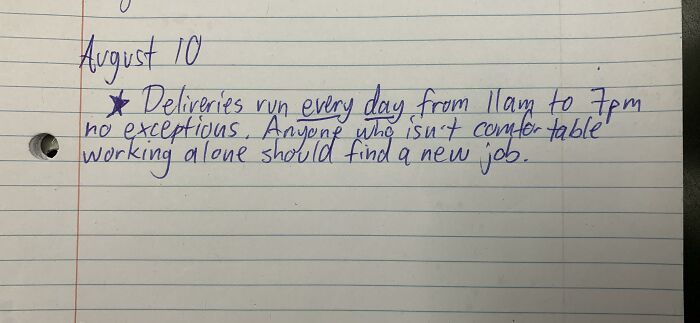 August 10
★ Deliveries run every day from 11am to 7pm
no exceptions. Anyone who isn't comfortable
working alone should find a new job.